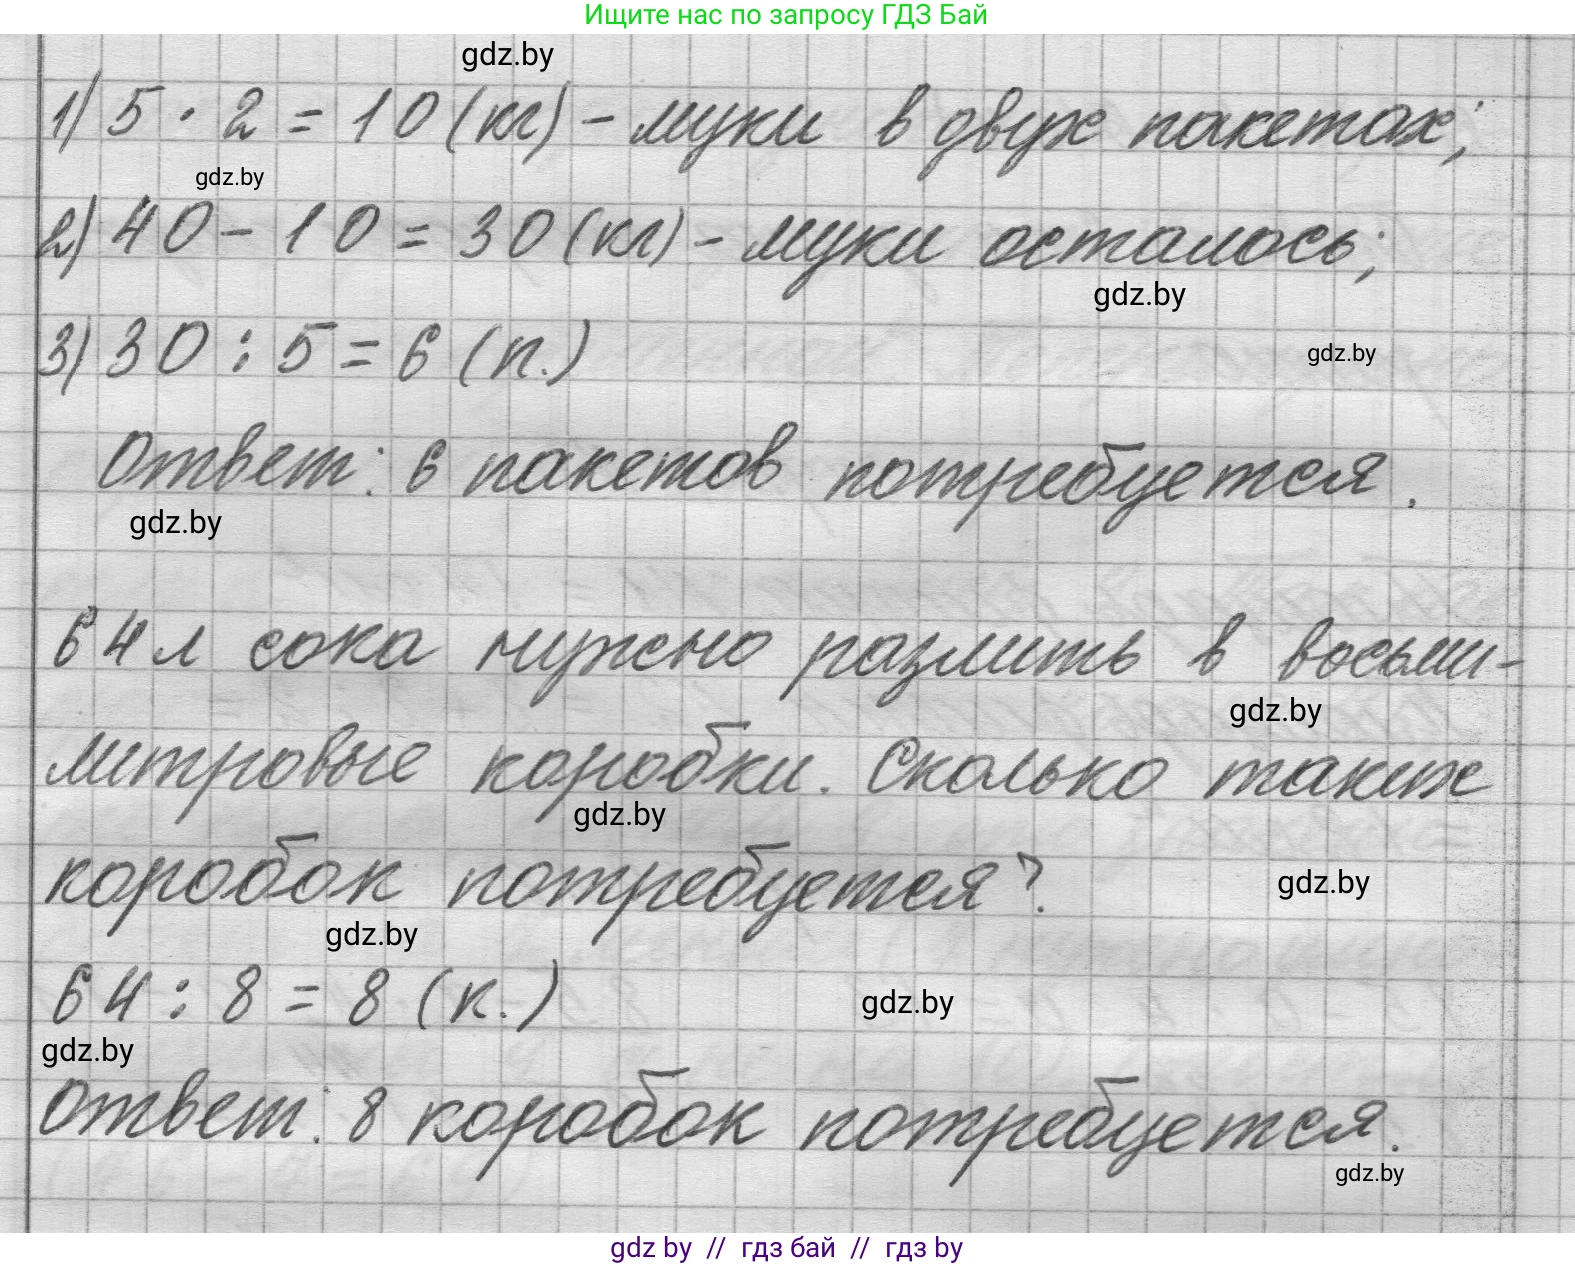 Ищите нас по запросу ГДЗ Бай
gdz.by
1) 5 · 2 = 10 (кг) - муки в двух пакетах;
gdz.by
2) 40 - 10 = 30 (кг) - муки осталось;
gdz.by
3) 30 : 5 = 6 (п.)
gdz.by
Ответ: 6 пакетов потребуется.
gdz.by
64 л сока нужно разлить в восьми-
gdz.by
литровые коробки. Сколько таких
gdz.by
коробок потребуется?
gdz.by
gdz.by
64 : 8 = 8 (к.)
gdz.by
gdz.by
Ответ: 8 коробок потребуется.
gdz.by
gdz by // гдз бай // гдз by